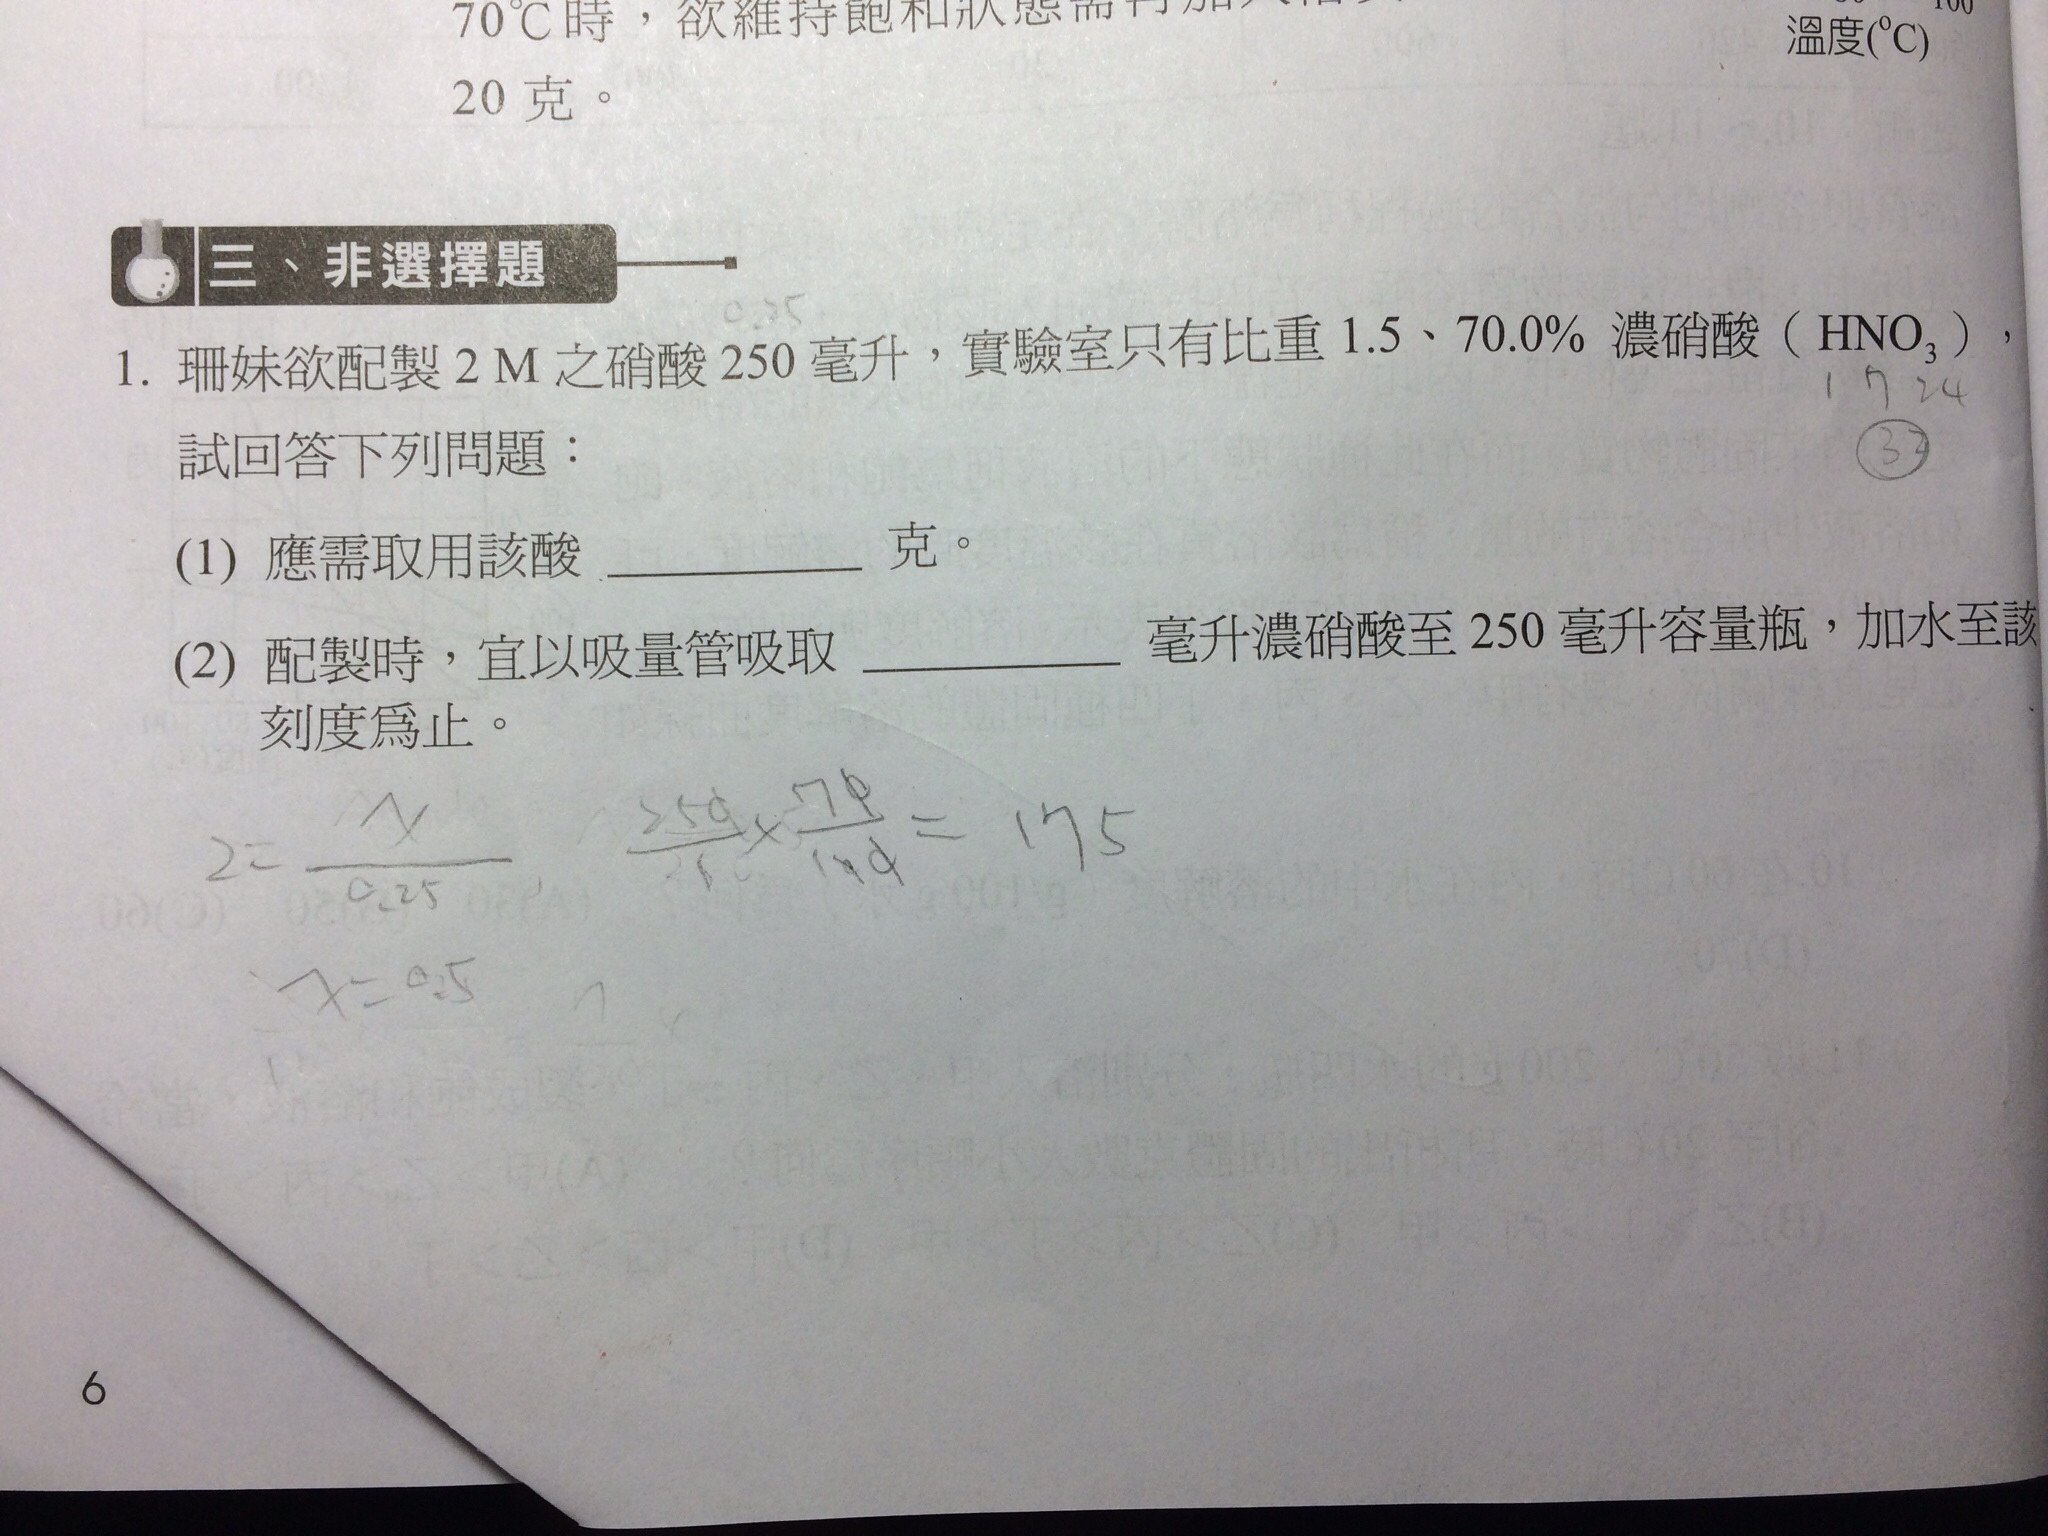 70℃時，欲維持飽和狀態需再加入溶質
20 克。
100
溫度(°C)
三、非選擇題
0.25
1. 珊妹欲配製 2 M 之硝酸 250 毫升，實驗室只有比重 1.5、70.0% 濃硝酸（HNO₃），
1 7 24
32
試回答下列問題：
(1) 應需取用該酸 ________ 克。
(2) 配製時，宜以吸量管吸取 ________ 毫升濃硝酸至 250 毫升容量瓶，加水至該
刻度為止。
2= x/0.25 , 250/ × 70/100 = 175
x=0.5
6